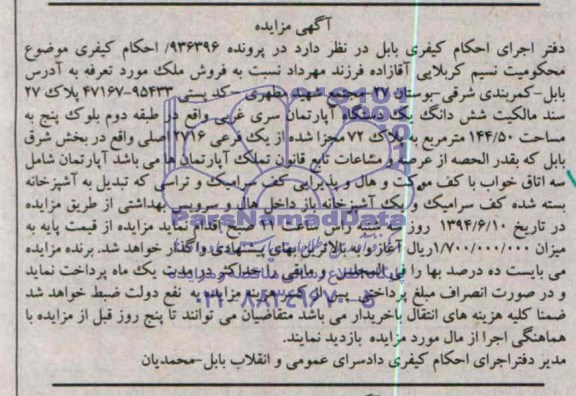 آگهی مزایده
دفتر اجرای احکام کیفری بابل در نظر دارد در پرونده ۹۳۶۳۹۶/ احکام کیفری موضوع
محکومیت نسیم کربلایی آقازاده فرزند مهرداد نسبت به فروش ملک مورد تعرفه به آدرس
بابل-کمربندی شرقی-بوستان ۲۷-مجتمع شهید مطهری-کد پستی ۹۵۴۳۳-۴۷۱۶۷ پلاک ۲۷
سند مالکیت شش دانگ یک دستگاه آپارتمان سری غربی واقع در طبقه دوم بلوک پنج به
مساحت ۱۴۴/۵۰ مترمربع به پلاک ۷۲ مجزا شده از یک فرعی ۲۷۱۶ اصلی واقع در بخش شرق
بابل که بقدر الحصه از عرصه و مشاعات تابع قانون تملک آپارتمان ها می باشد آپارتمان شامل
سه اتاق خواب با کف موکت و هال و پذیرایی کف سرامیک و تراسی که تبدیل به آشپزخانه
بسته شده کف سرامیک و یک آشپزخانه باز داخل هال و سرویس بهداشتی از طریق مزایده
در تاریخ ۱۳۹۴/۶/۱۰ روز سه شنبه راس ساعت ۱۱ صبح اقدام نماید مزایده از قیمت پایه به
میزان ۱/۷۰۰/۰۰۰/۰۰۰ریال آغاز و به بالاترین بهای پیشنهادی واگذار خواهد شد. برنده مزایده
می بایست ده درصد بها را فی المجلس و مابقی را حداکثر در مدت یک ماه پرداخت نماید
و در صورت انصراف مبلغ پرداختی پس از کسر هزینه مزایده به نفع دولت ضبط خواهد شد
ضمنا کلیه هزینه های انتقال باخریدار می باشد متقاضیان می توانند تا پنج روز قبل از مزایده با
هماهنگی اجرا از مال مورد مزایده بازدید نمایند.
مدیر دفتراجرای احکام کیفری دادسرای عمومی و انقلاب بابل-محمدیان
ParsNamadData
۰۲۱-۸۸۳۴۹۶۷۰-۵